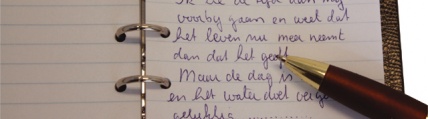 Ik zie de tijd aan mij
voorbij gaan en weet dat
het leven nu meer neemt
dan dat het geeft
Maar de dag is
en het water doet verge
gelukkig